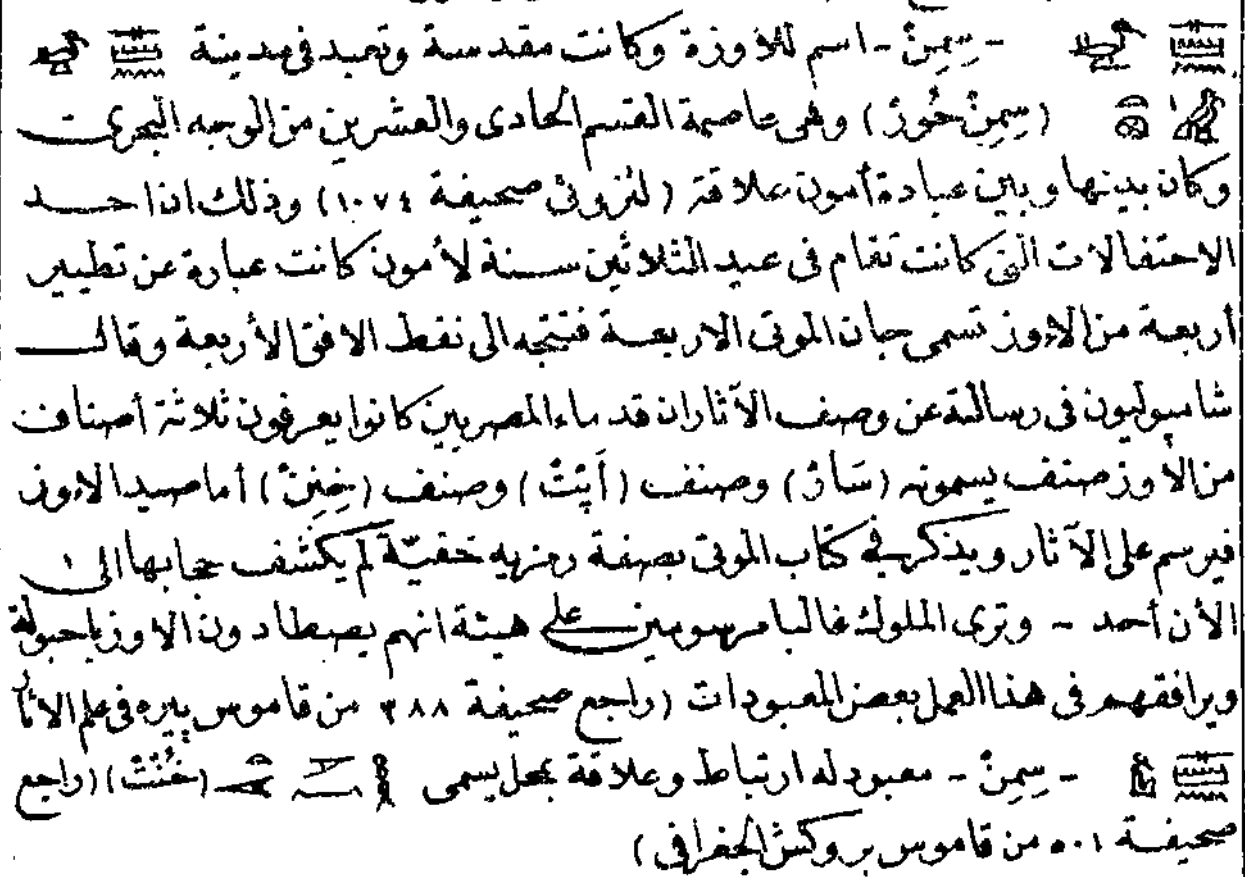 - سِمِنْ - اسم للاوزة وكانت مقدسة وتعبد فى مدينة
(سِمِنْ حُورْ) وهى عاصمة القسم الحادى والعشرين من الوجه البحرى
وكان بينها وبين عبادة أمون علاقة (لنزونى صحيفة ١٠٧٤) وذلك ان احد
الاحتفالات التى كانت تقام فى عيد الثلاثين سنة لأمون كانت عبارة عن تطيير
أربعة من الاوز تسمى جبان الموتى الاربعة فتتجه الى نقط الافق الأربعة وقال
شامبوليون فى رسالته عن وصف الآثار ان قدماء المصريين كانوا يعرفون ثلاثة أصناف
من الأوز صنف يسمونه (سَارْ) وصنف (أَپْتْ) وصنف (خِنِنْ) أما صيد الاوز
فيرسم على الآثار ويذكر فى كتاب الموتى بصفة رمزيه خفيّة لم يكشف حجابها الى
الأن أحد - وترى الملوك غالبا مرسومين على هيئة انهم يصطادون الاوز باحبولة
ويرافقهم فى هذا العمل بعض المعبودات (راجع صحيفة ٣٨٨ من قاموس پيره فى علم الاثار
- سِمِنْ - معبود له ارتباط وعلاقة بمحل يسمى (خُنْتْ) (راجع
صحيفة ٥٠١ من قاموس بروكش الجغرافى)